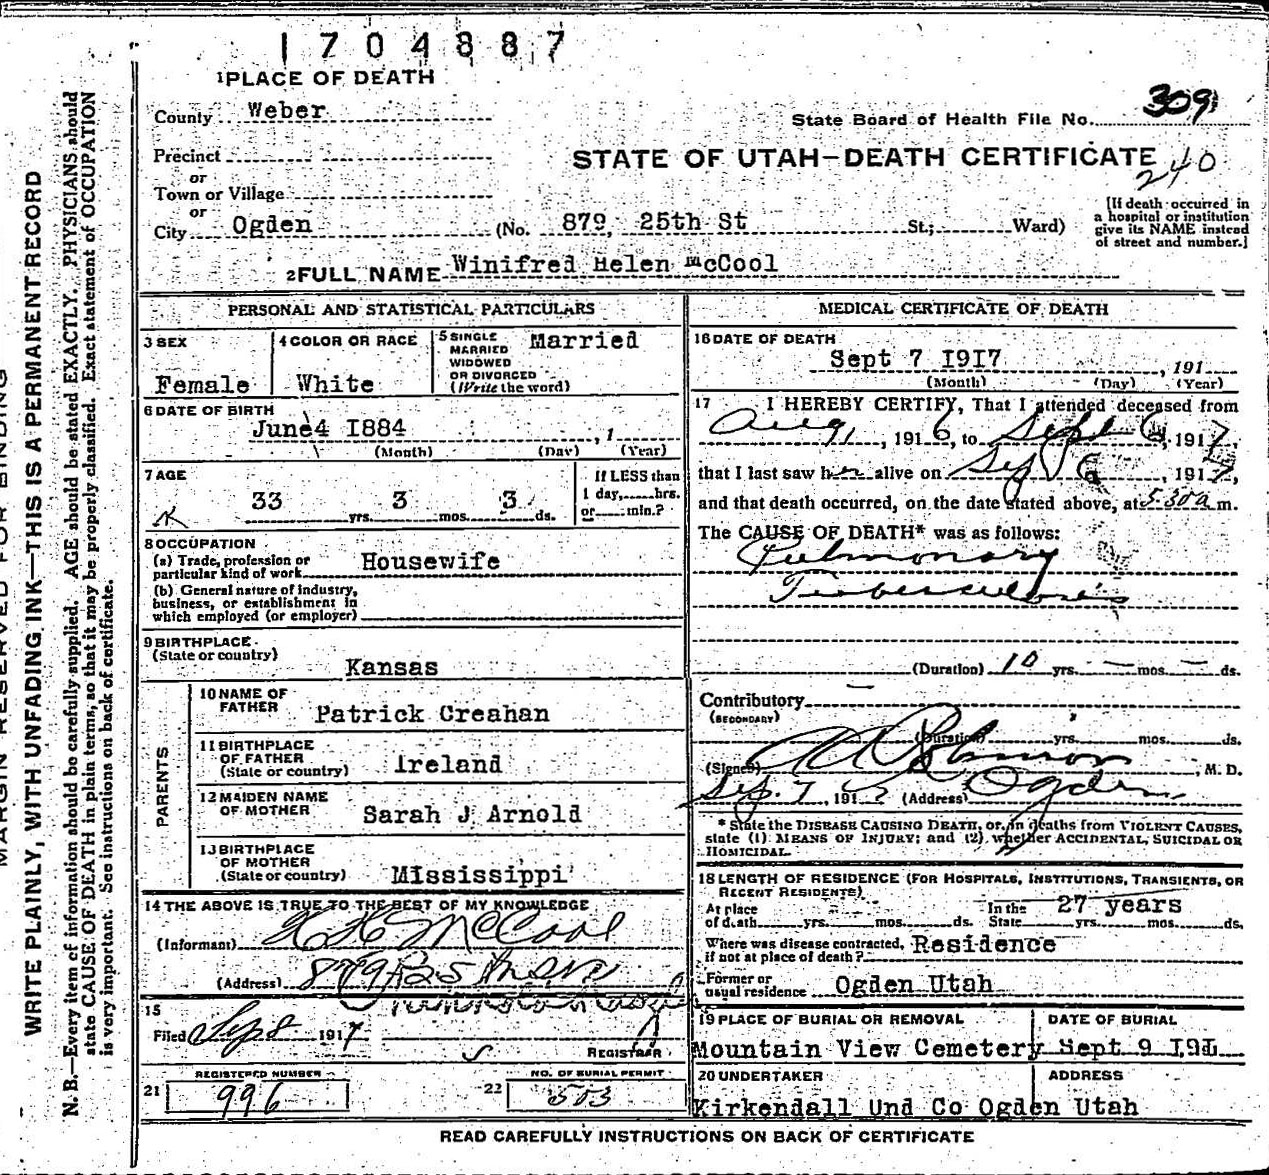 1704887
1 PLACE OF DEATH
County Weber
State Board of Health File No. 309
Precinct
STATE OF UTAH—DEATH CERTIFICATE
240
or
Town or Village
or
City Ogden (No. 879, 25th St St.; Ward)
[If death occurred in
a hospital or institution
give its NAME instead
of street and number.]
2 FULL NAME Winifred Helen McCool
PERSONAL AND STATISTICAL PARTICULARS
3 SEX
Female
4 COLOR OR RACE
White
5 SINGLE
MARRIED
WIDOWED
OR DIVORCED
(Write the word)
Married
6 DATE OF BIRTH
June 4 I884 , 1
(Month) (Day) (Year)
7 AGE
33 yrs. 3 mos. 3 ds.
If LESS than
1 day, hrs.
or min.?
8 OCCUPATION
(a) Trade, profession or
particular kind of work Housewife
(b) General nature of industry,
business, or establishment in
which employed (or employer)
9 BIRTHPLACE
(State or country)
Kansas
PARENTS
10 NAME OF
FATHER
Patrick Creahan
11 BIRTHPLACE
OF FATHER
(State or country)
Ireland
12 MAIDEN NAME
OF MOTHER
Sarah J Arnold
13 BIRTHPLACE
OF MOTHER
(State or country)
Mississippi
14 THE ABOVE IS TRUE TO THE BEST OF MY KNOWLEDGE
(Informant) McCool
(Address) 879 25th
15
Filed Sep 8 1917
REGISTRAR
REGISTERED NUMBER
21 996
NO. OF BURIAL PERMIT
22 503
MEDICAL CERTIFICATE OF DEATH
16 DATE OF DEATH
Sept 7 I9I7 , 191
(Month) (Day) (Year)
17 I HEREBY CERTIFY, That I attended deceased from
Aug, , 1916, to Sept 6, 1917,
that I last saw her alive on Sep 6, 1917,
and that death occurred, on the date stated above, at 5 30a m.
The CAUSE OF DEATH* was as follows:
Pulmonary
Tuberculosis
(Duration) 10 yrs. — mos. — ds.
Contributory
(SECONDARY)
(Duration) yrs. mos. ds.
(Signed) Robinson, M. D.
Sep. 7, 191 (Address) Ogden
* State the DISEASE CAUSING DEATH, or, in deaths from VIOLENT CAUSES,
state (1) MEANS OF INJURY; and (2) whether ACCIDENTAL, SUICIDAL OR
HOMICIDAL.
18 LENGTH OF RESIDENCE (FOR HOSPITALS, INSTITUTIONS, TRANSIENTS, OR
RECENT RESIDENTS)
At place
of death yrs. mos. ds.
In the
State 27 years yrs. mos. ds.
Where was disease contracted,
if not at place of death? Residence
Former or
usual residence Ogden Utah
19 PLACE OF BURIAL OR REMOVAL
Mountain View Cemetery
DATE OF BURIAL
Sept 9 I9I
20 UNDERTAKER
Kirkendall Und Co
ADDRESS
Ogden Utah
READ CAREFULLY INSTRUCTIONS ON BACK OF CERTIFICATE
MARGIN RESERVED FOR BINDING
WRITE PLAINLY, WITH UNFADING INK—THIS IS A PERMANENT RECORD
N. B.—Every item of information should be carefully supplied. AGE should be stated EXACTLY. PHYSICIANS should
state CAUSE OF DEATH in plain terms, so that it may be properly classified. Exact statement of OCCUPATION
is very important. See instructions on back of certificate.